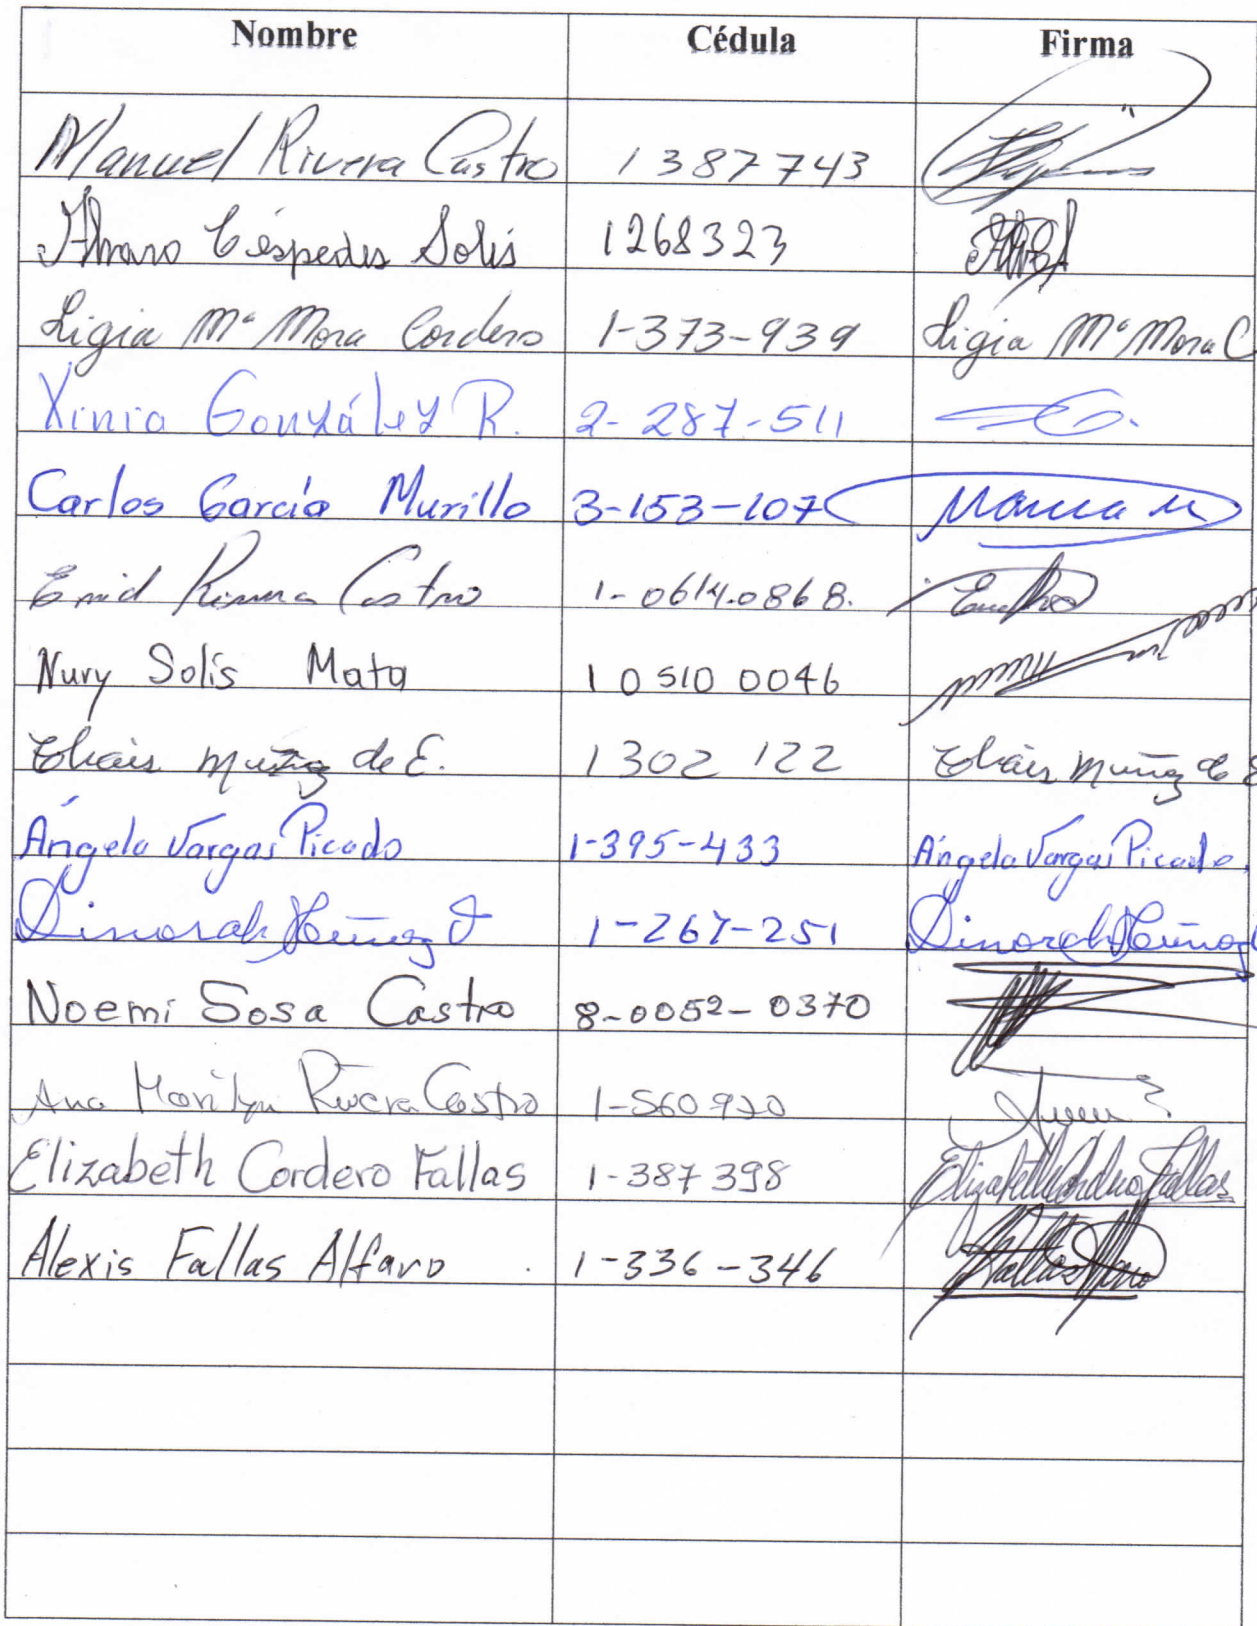 Nombre Cédula Firma
Manuel Rivera Castro 1387743
Alvaro Céspedes Solís 1268323
Ligia Mª Mora Cordero 1-373-939 Ligia Mª Mora C
Xinia González R. 2-287-511
Carlos García Murillo 3-153-107
Enid Rivera Castro 1-0614.0868.
Nury Solís Mata 1 0510 0046
Muñoz de E. 1302 122 Muñoz de E
Ángela Vargas Picado 1-395-433 Ángela Vargas Picado.
Dinorah Núñez 1-267-251 Dinorah Núñez
Noemí Sosa Castro 8-0052-0370
Ana Marilyn Rivera Castro 1-560920
Elizabeth Cordero Fallas 1-387398 Elizabeth Cordero Fallas
Alexis Fallas Alfaro 1-336-346